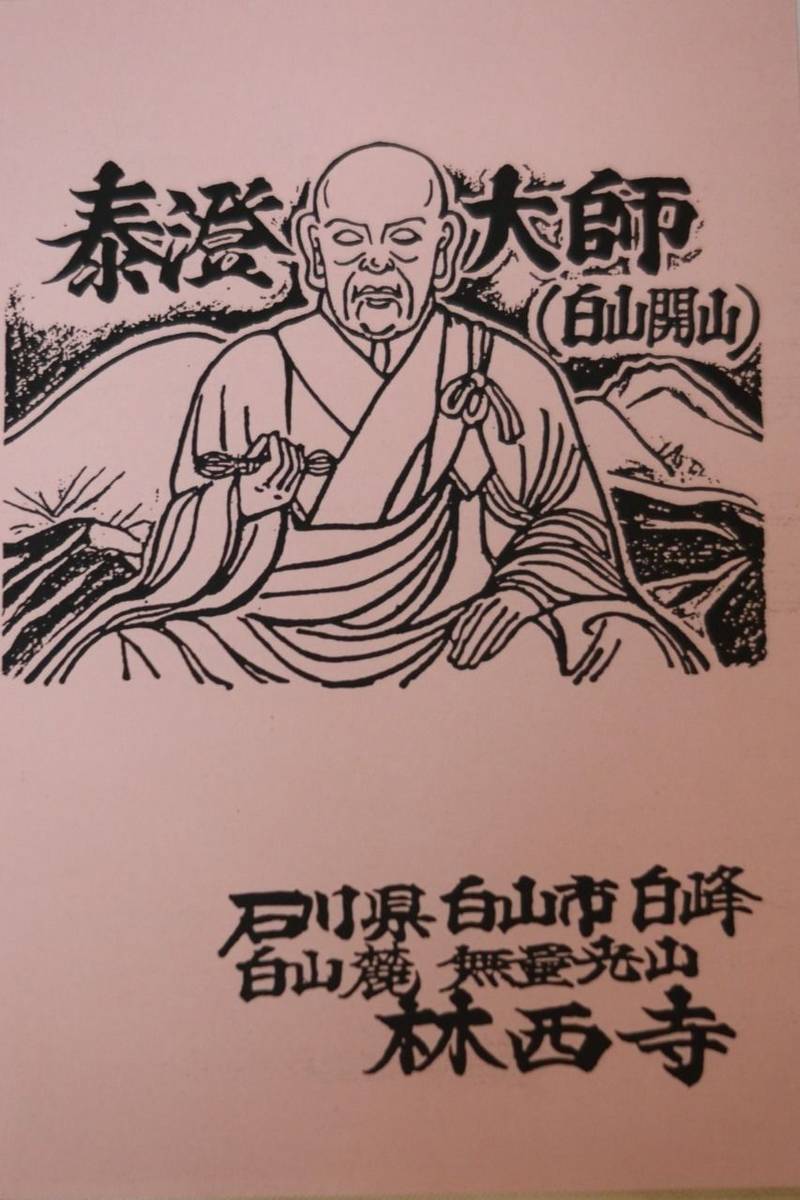 泰澄大師
(白山開山)
石川県 白山市 白峰
白山麓 無量光山
林西寺